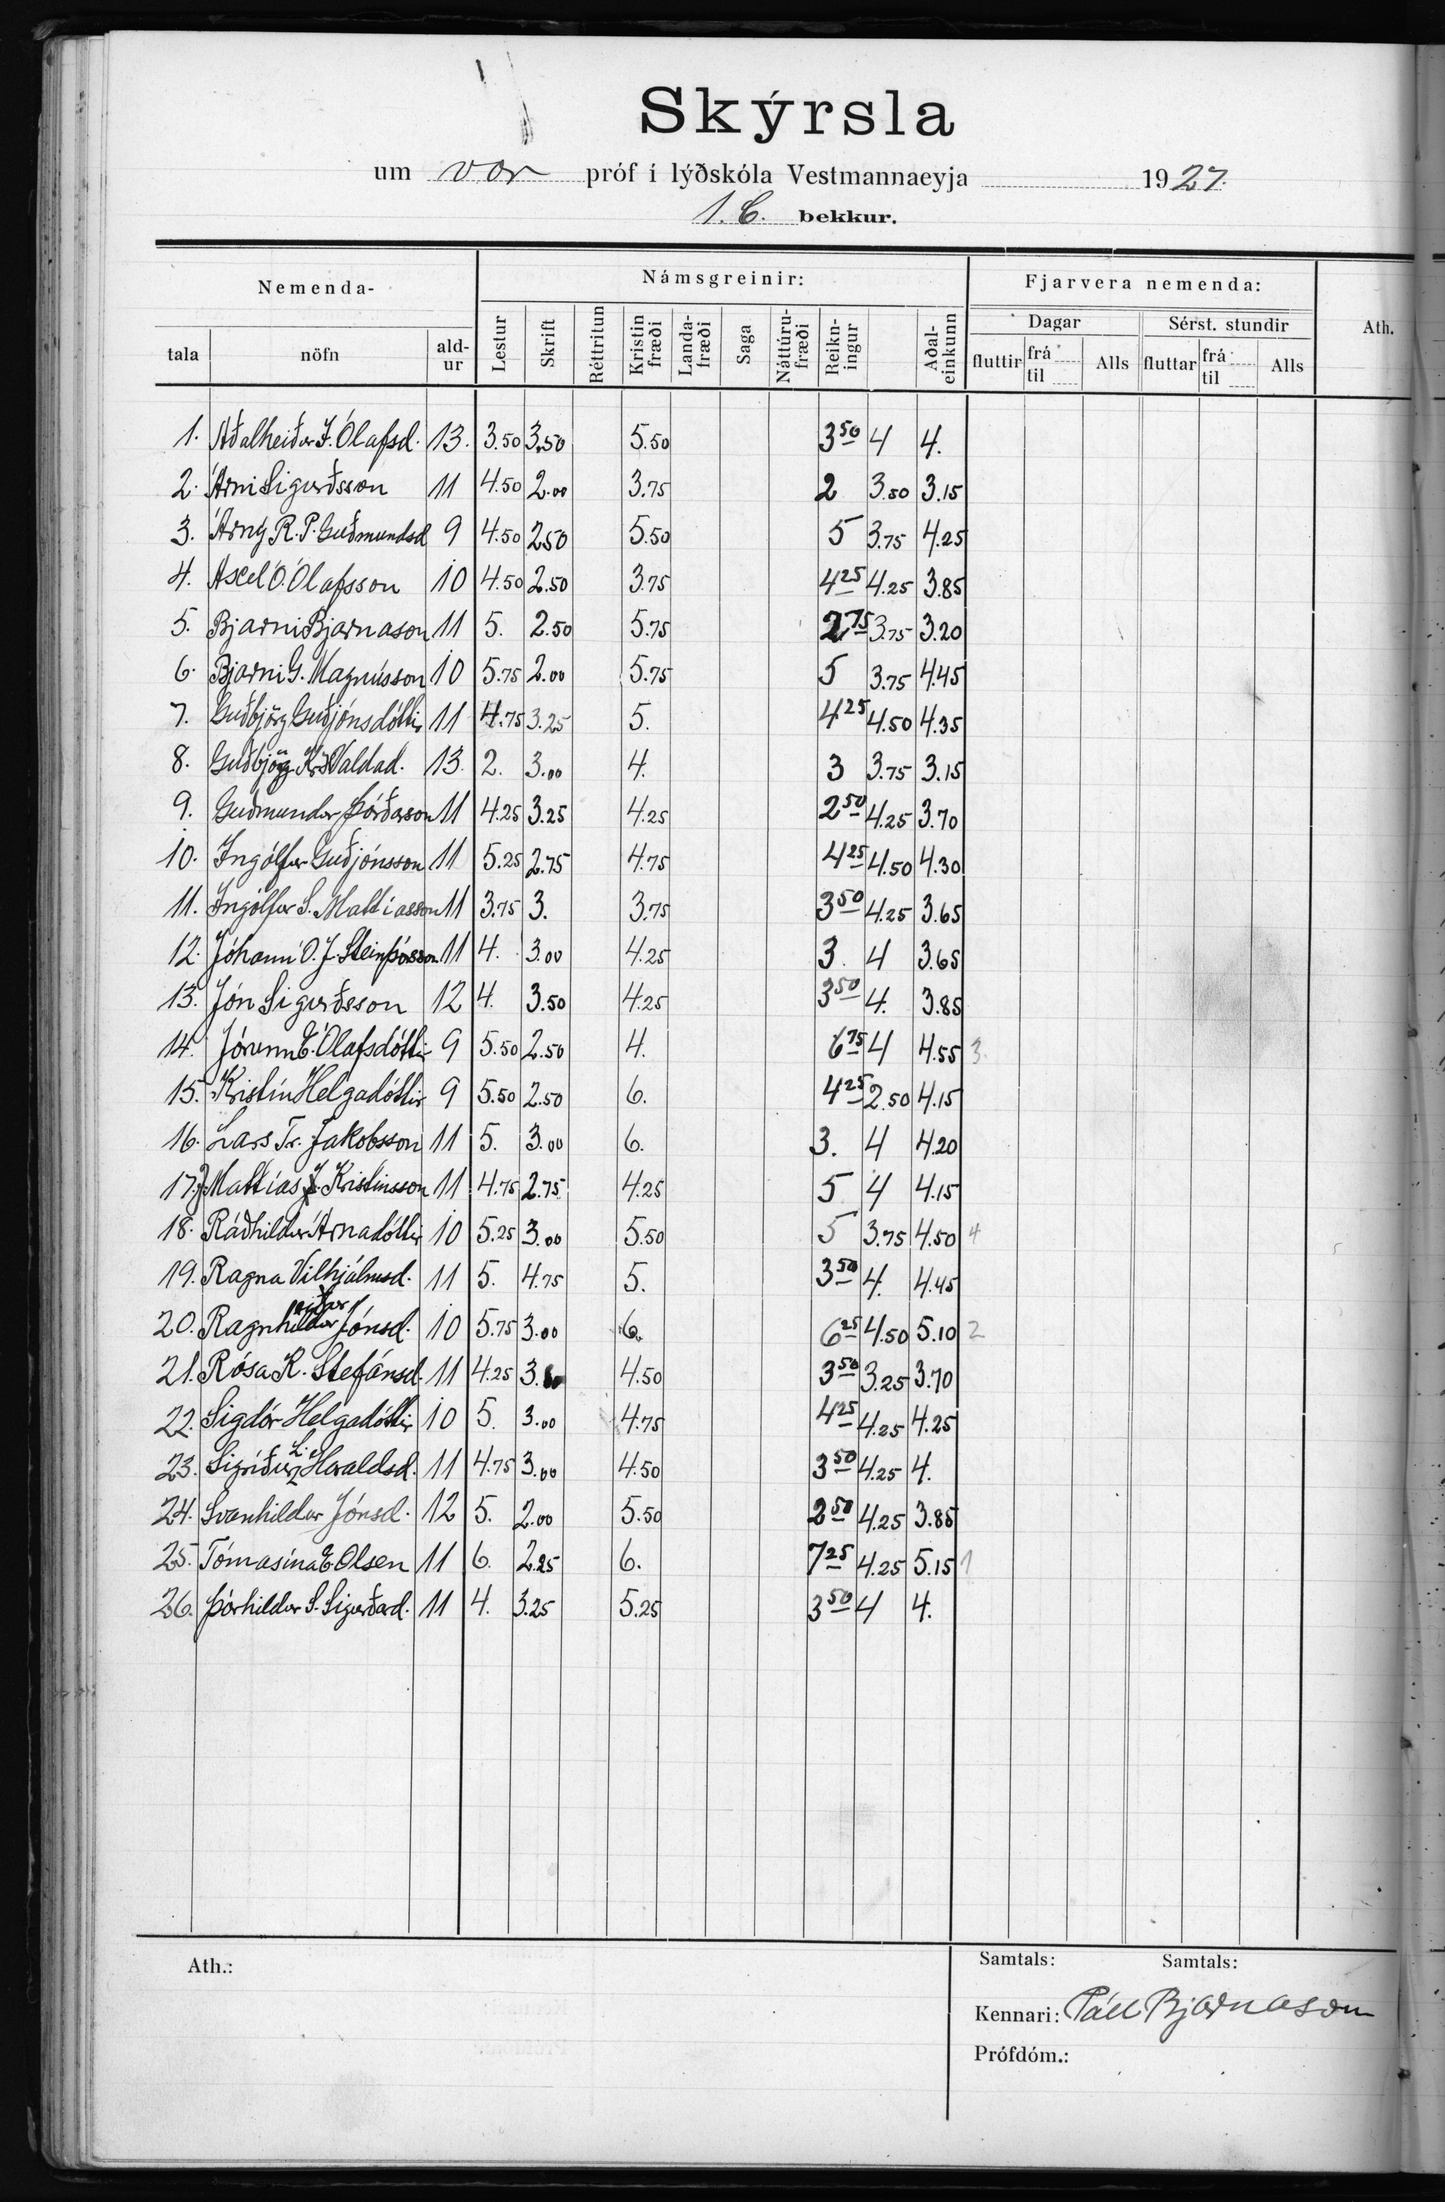 Skýrsla
um vor próf í lýðskóla Vestmannaeyja 1927.
1. C. bekkur.
Nemenda- Námsgreinir: Fjarvera nemenda: Ath.
tala nöfn ald-ur Lestur Skrift Réttritun Kristin fræði Landa-fræði Saga Náttúru-fræði Reikn-ingur Aðal-einkunn Dagar Sérst. stundir
fluttir frá til Alls fluttar frá til Alls
1. Aðalheiður J. Ólafsd. 13. 3.50 3.50 5.50 3 50 4 4.
2. Árni Sigurðsson 11 4.50 2.00 3.75 2 3.50 3.15
3. Árný R. P. Guðmundsd 9 4.50 2.50 5.50 5 3.75 4.25
4. Axel Ó. Ólafsson 10 4.50 2.50 3.75 4 25 4.25 3.85
5. Bjarni Bjarnason 11 5. 2.50 5.75 2 75 3.75 3.20
6. Bjarni G. Magnússon 10 5.75 2.00 5.75 5 3.75 4.45
7. Guðbjörg Guðjónsdóttir 11 4.75 3.25 5. 4 25 4.50 4.35
8. Guðbjörg Valdad. 13. 2. 3.00 4. 3 3.75 3.15
9. Guðmundur Þórðarson 11 4.25 3.25 4.25 2 50 4.25 3.70
10. Ingólfur Guðjónsson 11 5.25 2.75 4.75 4 25 4.50 4.30
11. Ingólfur S. Mattíasson 11 3.75 3. 3.75 3 50 4.25 3.65
12. Jóhann Ó. J. Steinþórsson 11 4. 3.00 4.25 3. 4 3.65
13. Jón Sigurðsson 12 4. 3.50 4.25 3 50 4. 3.85
14. Jórunn E. Ólafsdóttir 9 5.50 2.50 4. 6 75 4 4.55 3.
15. Kristín Helgadóttir 9 5.50 2.50 6. 4 25 2.50 4.15
16. Lars Tr. Jakobsson 11 5. 3.00 6. 3. 4 4.20
17. Mattías J. Kristinsson 11 4.75 2.75 4.25 5 4 4.15
18. Ráðhildur Árnadóttir 10 5.25 3.00 5.50 5 3.75 4.50 4
19. Ragna Vilhjálmsd. 11 5. 4.75 5. 3 50 4. 4.45
20. Ragnheiður Jónsd. 10 5.75 3.00 6. 6 25 4.50 5.10 2
21. Rósa K. Stefánsd. 11 4.25 3. 4.50 3 50 3.25 3.70
22. Sigdór Helgadóttir 10 5. 3.00 4.75 4 25 4.25 4.25
23. Sigríður L. Haraldsd. 11 4.75 3.00 4.50 3 50 4.25 4.
24. Svanhildur Jónsd. 12 5. 2.00 5.50 2 50 4.25 3.85
25. Tómasína E. Olsen 11 6. 2.25 6. 7 25 4.25 5.15 1
26. Þórhildur S. Sigurðard. 11 4. 3.25 5.25 3 50 4 4.
Ath.: Samtals: Samtals:
Kennari: Páll Bjarnason
Prófdóm.: